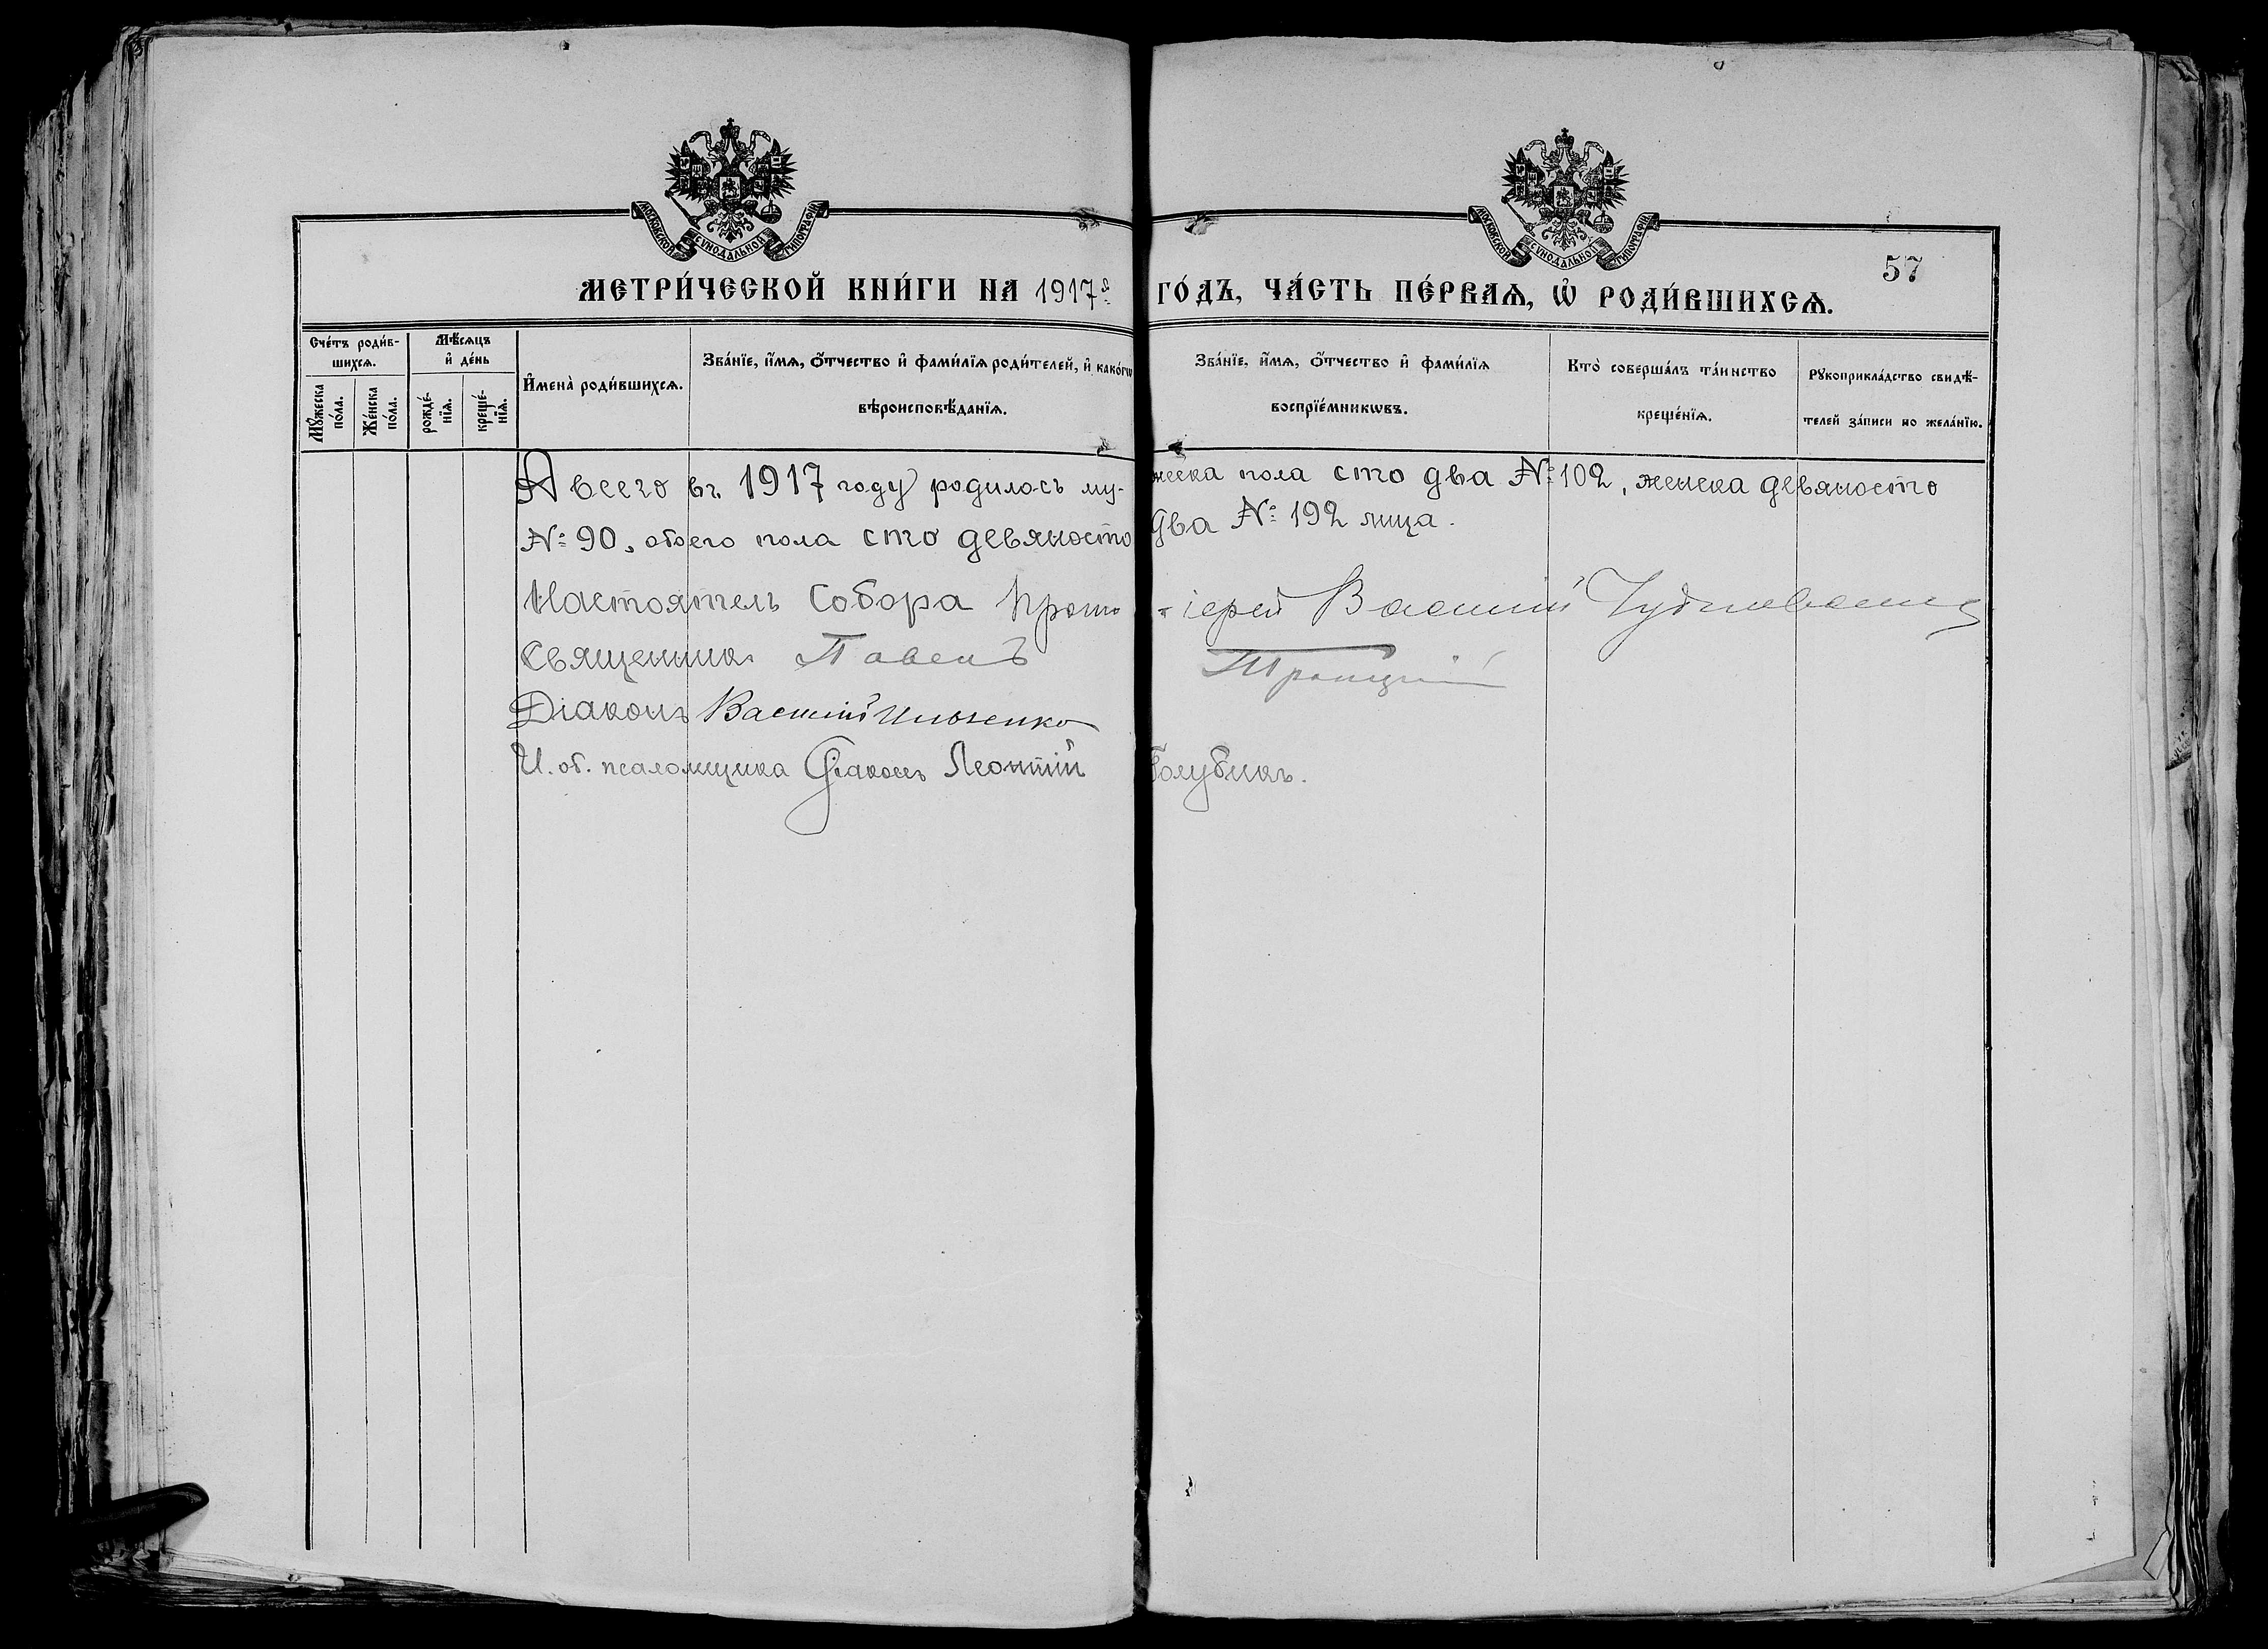 МОСКОВСКОЙ СѴНОДАЛЬНОЙ ТИПОГРАФІИ
МОСКОВСКОЙ СѴНОДАЛЬНОЙ ТИПОГРАФІИ
57
МЕТРИ́ЧЕСКОЙ КНИ́ГИ НА 1917й ГО́ДЪ, ЧА́СТЬ ПЕ́РВАѦ, Ѡ҆ РОДИ́ВШИХСѦ.
Сче́тъ роди́в-
шихсѧ.
Мꙋ́жеска по́ла.
Же́нска по́ла.
Мѣ́сѧцъ
и҆ де́нь
рожде́-
нїѧ.
креще́-
нїѧ.
И҆мена̀ роди́вшихсѧ.
Зва́нїе, и҆́мѧ, ѻ҆́тчество и҆ фами́лїѧ роди́телей, и҆ како́гѡ
вѣроисповѣ́данїѧ.
Зва́нїе, и҆́мѧ, ѻ҆́тчество и҆ фами́лїѧ
воспрїе́мникѡвъ.
Кто̀ соверша́лъ та́инство
креще́нїѧ.
Рꙋкоприкла́дство свидѣ́-
телей за́писи по жела́нїю.
А всего въ 1917 году родилось мужеска пола сто два № 102, женска девяносто
№ 90, обоего пола сто девяносто два № 192 лица.
Настоятель Собора Протоіерей Василій
Священникъ Павелъ Троицкій
Діаконъ Василій Ильченко
И. об. псаломщика Діаконъ Леонтій Голубикъ.